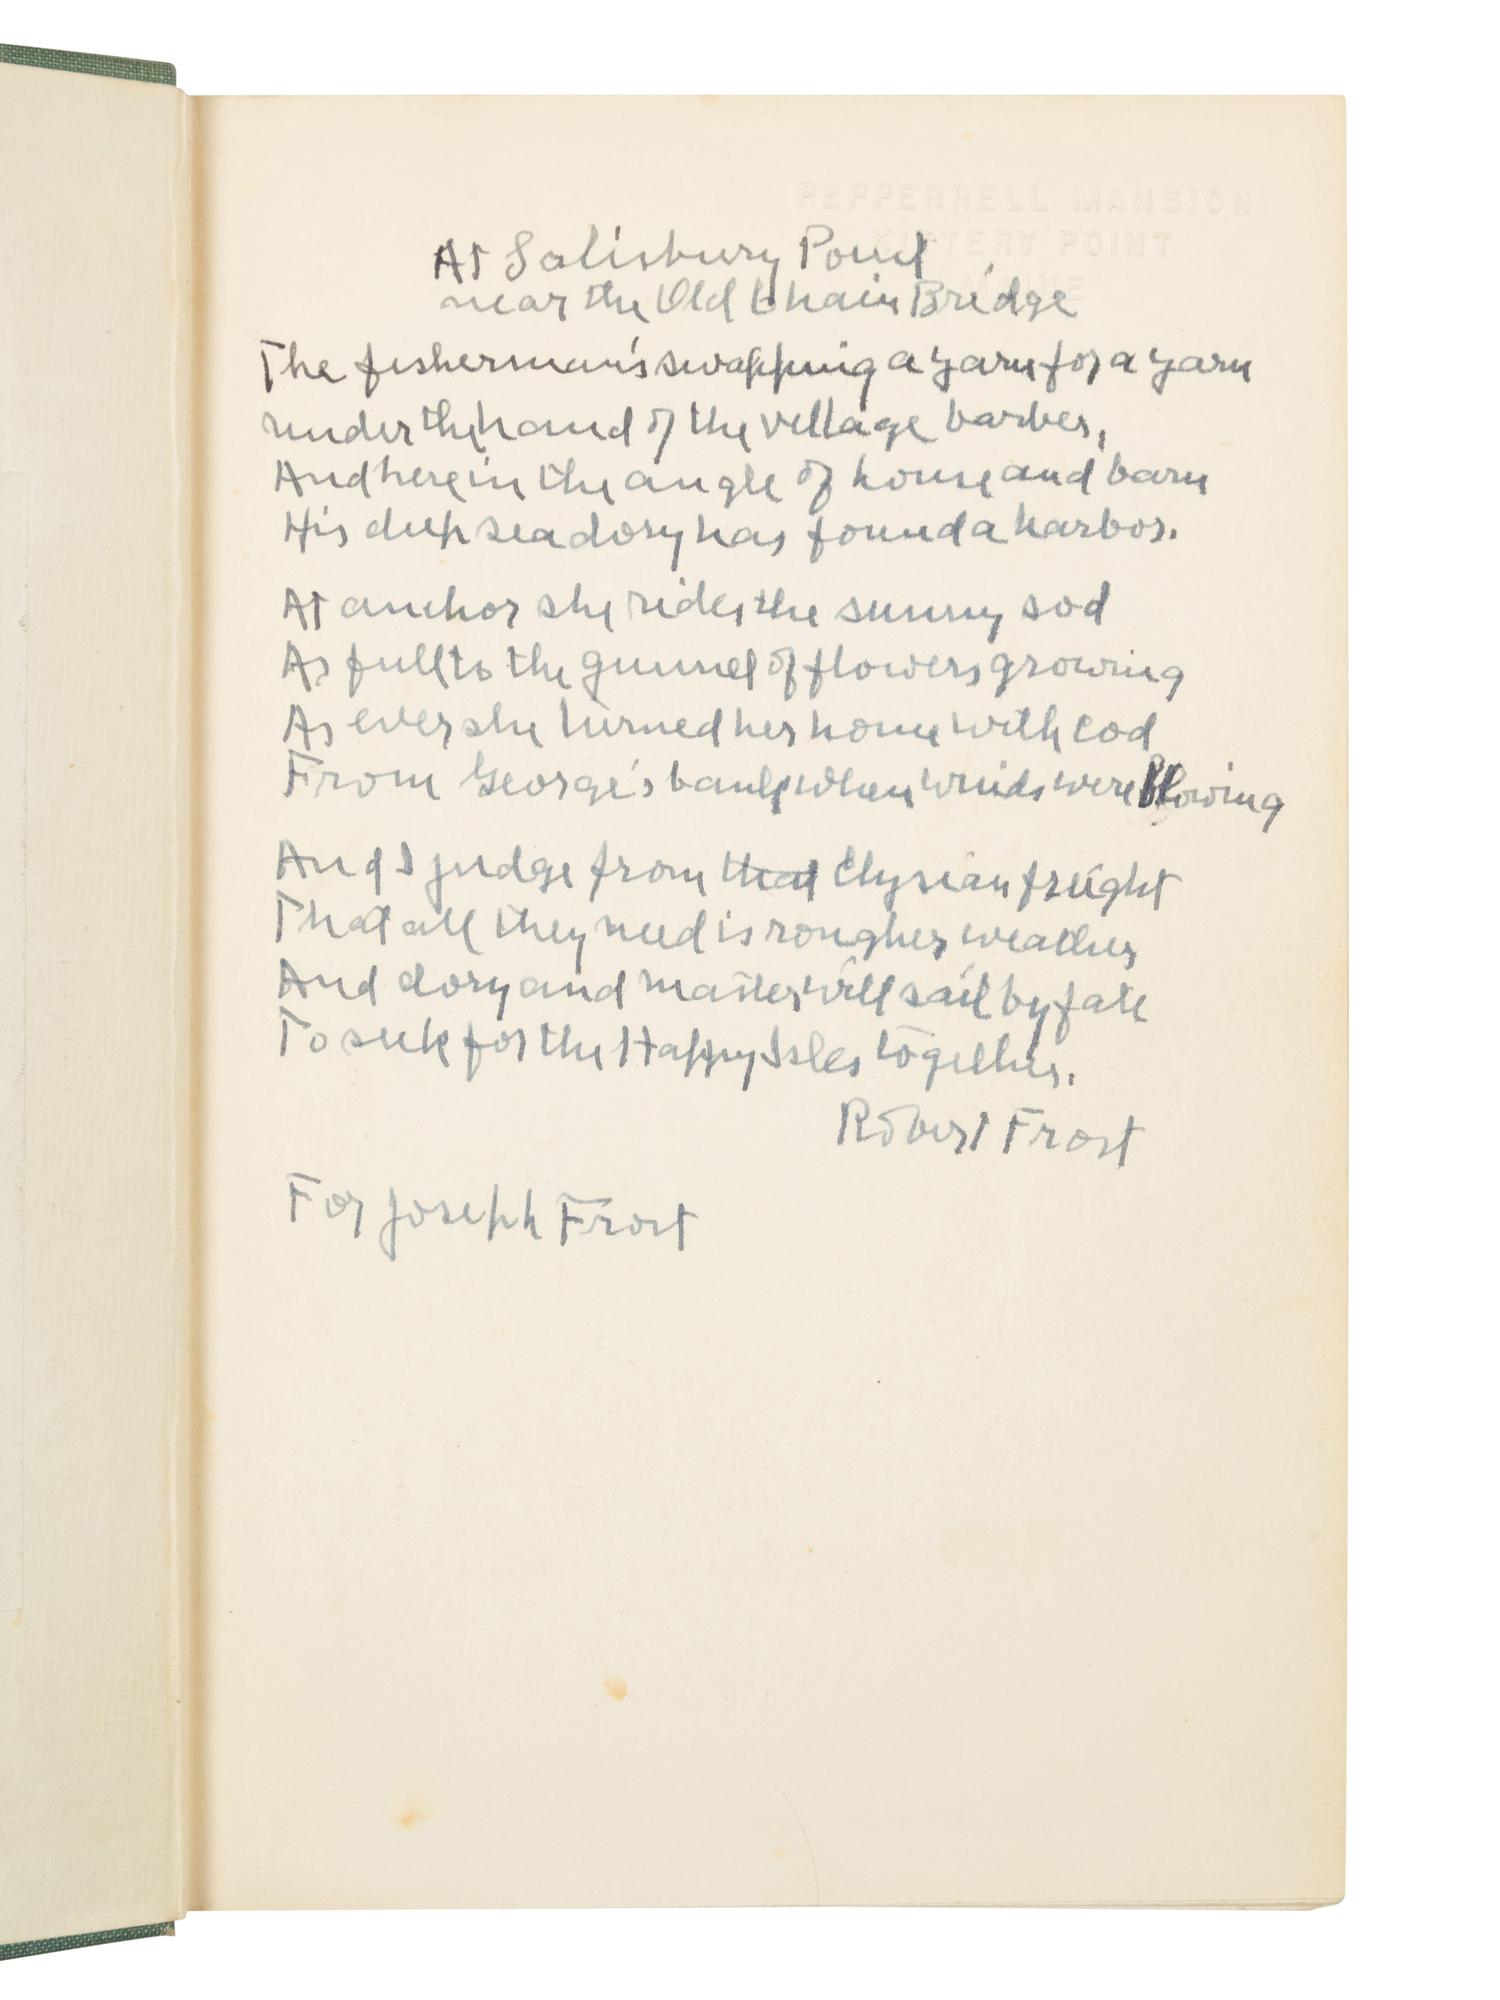 PEPPERRELL MANSION
KITTERY POINT
MAINE
At Salisbury Point
near the Old Chain Bridge
The fisherman's swapping a yarn for a yarn
under the hand of the village barber,
And here in the angle of house and barn
His deep sea dory has found a harbor.
At anchor she rides the sunny sod
As full to the gunnel of flowers growing
As ever she turned her home with cod
From George's bank when winds were blowing
And I judge from that Elysian freight
That all they need is rougher weather
And dory and master will sail by fate
To seek for the Happy Isles together.
Robert Frost
For Joseph Frost